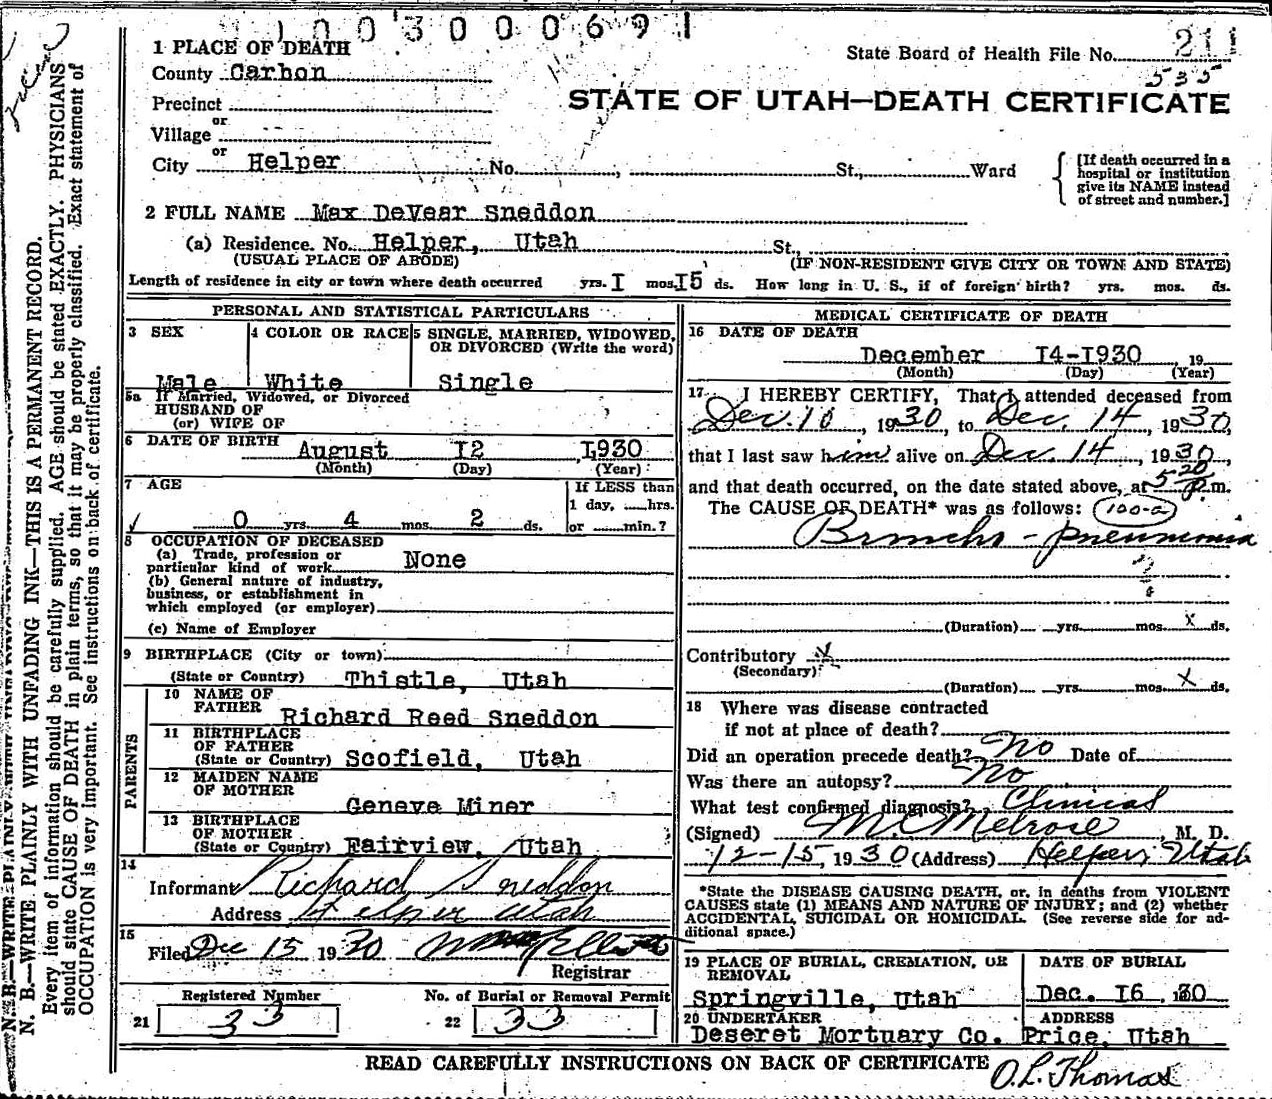 1003000691
1 PLACE OF DEATH
County Carbon
State Board of Health File No. 211
535
Precinct
or
Village
or
City Helper No. , St., Ward
STATE OF UTAH—DEATH CERTIFICATE
[If death occurred in a
hospital or institution
give its NAME instead
of street and number.]
2 FULL NAME Max DeVear Sneddon
(a) Residence. No. Helper, Utah St.,
(USUAL PLACE OF ABODE) (IF NON-RESIDENT GIVE CITY OR TOWN AND STATE)
Length of residence in city or town where death occurred yrs. I mos. I5 ds. How long in U. S., if of foreign birth? yrs. mos. ds.
PERSONAL AND STATISTICAL PARTICULARS
3 SEX
Male
4 COLOR OR RACE
White
5 SINGLE, MARRIED, WIDOWED,
OR DIVORCED (Write the word)
Single
5a If Married, Widowed, or Divorced
HUSBAND OF
(or) WIFE OF
6 DATE OF BIRTH August I2 I930
(Month) (Day) (Year)
7 AGE
0 yrs. 4 mos. 2 ds.
If LESS than
1 day, hrs.
or min.?
8 OCCUPATION OF DECEASED
(a) Trade, profession or
particular kind of work None
(b) General nature of industry,
business, or establishment in
which employed (or employer)
(c) Name of Employer
9 BIRTHPLACE (City or town)
(State or Country) Thistle, Utah
PARENTS
10 NAME OF
FATHER Richard Reed Sneddon
11 BIRTHPLACE
OF FATHER
(State or Country) Scofield, Utah
12 MAIDEN NAME
OF MOTHER
Geneve Miner
13 BIRTHPLACE
OF MOTHER
(State or Country) Fairview, Utah
14
Informant Richard Sneddon
Address Helper Utah
15
Filed Dec 15 1930
Registrar
Registered Number
21 33
No. of Burial or Removal Permit
22 33
MEDICAL CERTIFICATE OF DEATH
16 DATE OF DEATH
December I4-I930 , 19
(Month) (Day) (Year)
17 I HEREBY CERTIFY, That I attended deceased from
Dec. 10, 1930, to Dec. 14, 1930,
that I last saw him alive on Dec. 14, 1930,
and that death occurred, on the date stated above, at 5 20 P.m.
The CAUSE OF DEATH* was as follows: 100-a
Broncho-pneumonia
(Duration) yrs. mos. x ds.
Contributory x
(Secondary)
(Duration) yrs. mos. x ds.
18 Where was disease contracted
if not at place of death?
Did an operation precede death? No Date of
Was there an autopsy? No
What test confirmed diagnosis? Clinical
(Signed) M C Melrose, M. D.
12-15, 1930 (Address) Helper, Utah
*State the DISEASE CAUSING DEATH, or, in deaths from VIOLENT
CAUSES state (1) MEANS AND NATURE OF INJURY; and (2) whether
ACCIDENTAL, SUICIDAL OR HOMICIDAL. (See reverse side for ad-
ditional space.)
19 PLACE OF BURIAL, CREMATION, OR
REMOVAL
Springville, Utah
DATE OF BURIAL
Dec. I6, 30
20 UNDERTAKER
Deseret Mortuary Co.
ADDRESS
Price, Utah
READ CAREFULLY INSTRUCTIONS ON BACK OF CERTIFICATE
O. L. Thomas
N. B.—WRITE PLAINLY WITH UNFADING INK—THIS IS A PERMANENT RECORD.
Every item of information should be carefully supplied. AGE should be stated EXACTLY. PHYSICIANS
should state CAUSE OF DEATH in plain terms, so that it may be properly classified. Exact statement of
OCCUPATION is very important. See instructions on back of certificate.